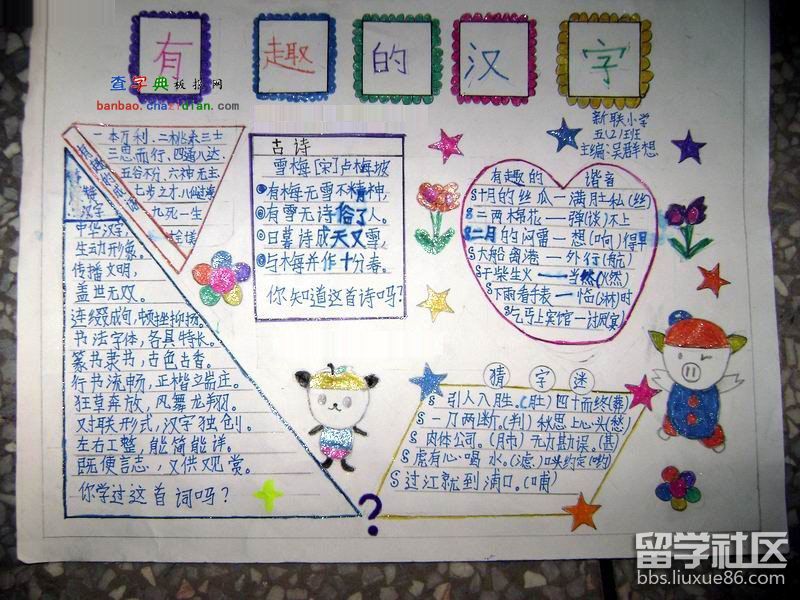 有趣的汉字
查字典板报网
banbao.chazidian.com
新联小学
五(2)班
主编:吴群想
一本万利.二桃杀三士
三思而行.四通八达.
五谷不分.六神无主
七步之才.八仙过海
九死一生
赞
汉字
中华汉字,
生动形象。
传播文明,
盖世无双。
连缀成句,顿挫抑扬。
书法字体,各具特长。
篆书隶书,古色古香。
行书流畅,正楷端庄。
狂草奔放,凤舞龙翔。
对联形式,汉字独创。
左右工整,能简能详。
既便言志,又供观赏。
你学过这首词吗?
古诗
雪梅[宋]卢梅坡
有梅无雪不精神,
有雪无诗俗了人。
日暮诗成天又雪,
与梅并作十分春。
你知道这首诗吗?
有趣的谐音
十月的丝瓜—满肚私(丝)
二两棉花—弹(谈)不上
二月的闷雷—想(响)得早
大船离港—外行(航)
干柴生火—当然(燃)
下雨看手表—恰(淋)时
乞丐上宾馆—讨风宴)
猜字迷
引人入胜.(肚)四十而终(舞)
一刀两断.(判)秋思上心头(愁)
肉体公司.(肺)无力勘误.(甚)
虑有心喝水.(滤)口头约定(哟)
过江就到浦口.(哺)
?
留学社区
bbs.liuxue86.com